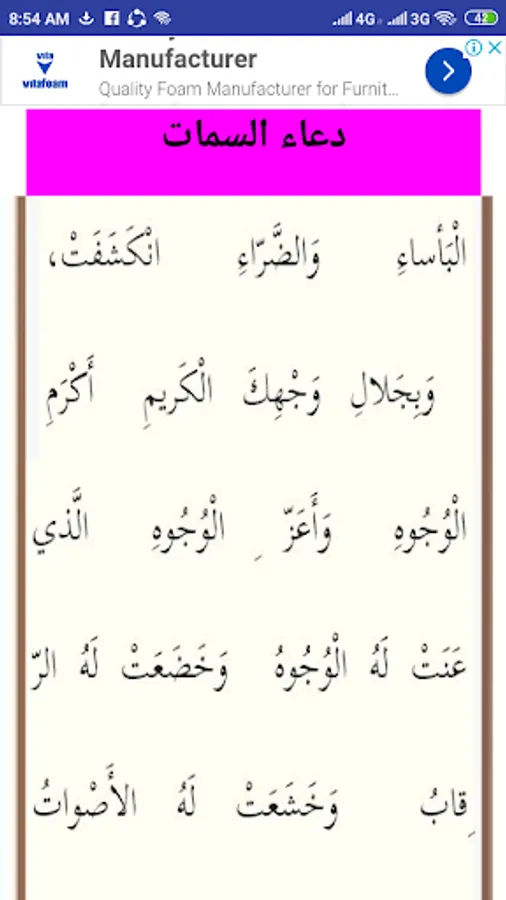 8:54 AM 4G 3G 42
Manufacturer
vita
vitafoam
Quality Foam Manufacturer for Furnit...
دعاء السمات
الْبَأساءِ وَالضَّرّاءِ انْكَشَفَتْ،
وَبِجَلالِ وَجْهِكَ الْكَريمِ أَكْرَمِ
الْوُجُوهِ وَأَعَزِّ الْوُجُوهِ الَّذي
عَنَتْ لَهُ الْوُجُوهُ وَخَضَعَتْ لَهُ الرّ
ِقابُ وَخَشَعَتْ لَهُ الأَصْواتُ